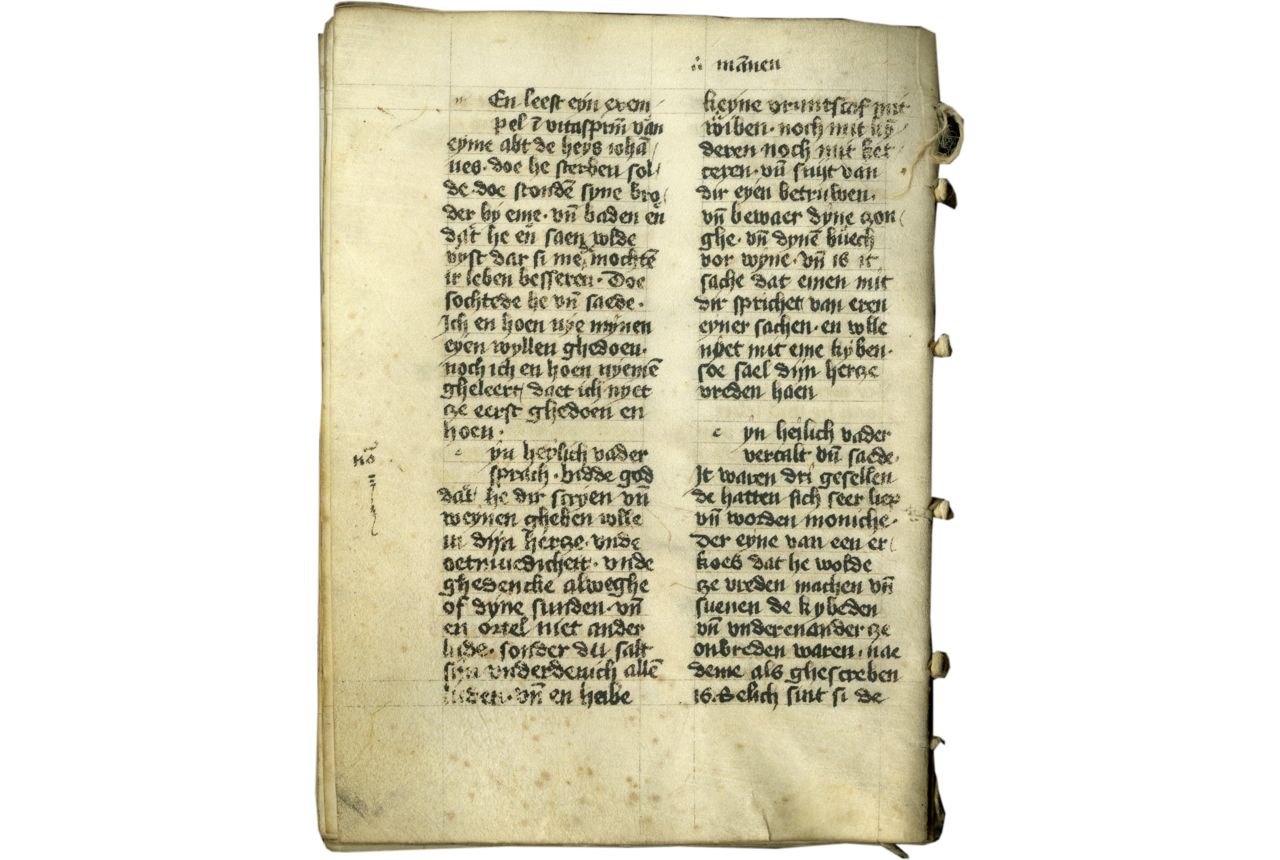 mānen
En leest eyn exem
pel ī vitaspr̄m van
eyme abt de heys iohā
nes· doe he sterben sol
de· doe stondē syne bro
der by eme· vn̄ baden en
dat he en saen wlde
vyst dar si me mochtē
ir leben besseren· Doe
sochtede he vn̄ saede·
Ich en hoen nye mynen
eyen wyllen ghedoen·
noch ich en hoen nyemē
gheleert daet ich nyet
ze eerst ghedoen en
hoen·
yn heylich vader
sprach· bidde god
dat he dir scryen vn̄
weynen gheben wlle
in dijn herze· vnde
oetmuedicheit· vnde
ghedencke alweghe
of dyne sunden· vn̄
en ortel niet ander
lude· sonder du salt
sijn vnderdenich allē
luden· vn̄ en hebe
keyne vrintscaf mit
wiben· noch mit ky
deren noch mit ket
teren· vn̄ snijt van
dir eyen betruwen·
vn̄ bewaer dyne zon
ghe· vn̄ dynē buech
vor wyne· vn̄ is it
sache dat einen mit
dir sprichet van eren
eyner sachen· en wlle
nyet mit eme kyben·
soe sael dijn herze
vreden haen
yn heilich vader
vertalt vn̄ saede·
It waren dri gesellen
de hatten sich seer liep
vn̄ worden moniche·
Der eyne van een er
koes dat he wolde
ze vreden machen vn̄
suenen de kybeden
vn̄ vnderenander ze
onvreden waren· nae
deme als ghescreben
is· Selich sint si de
nō